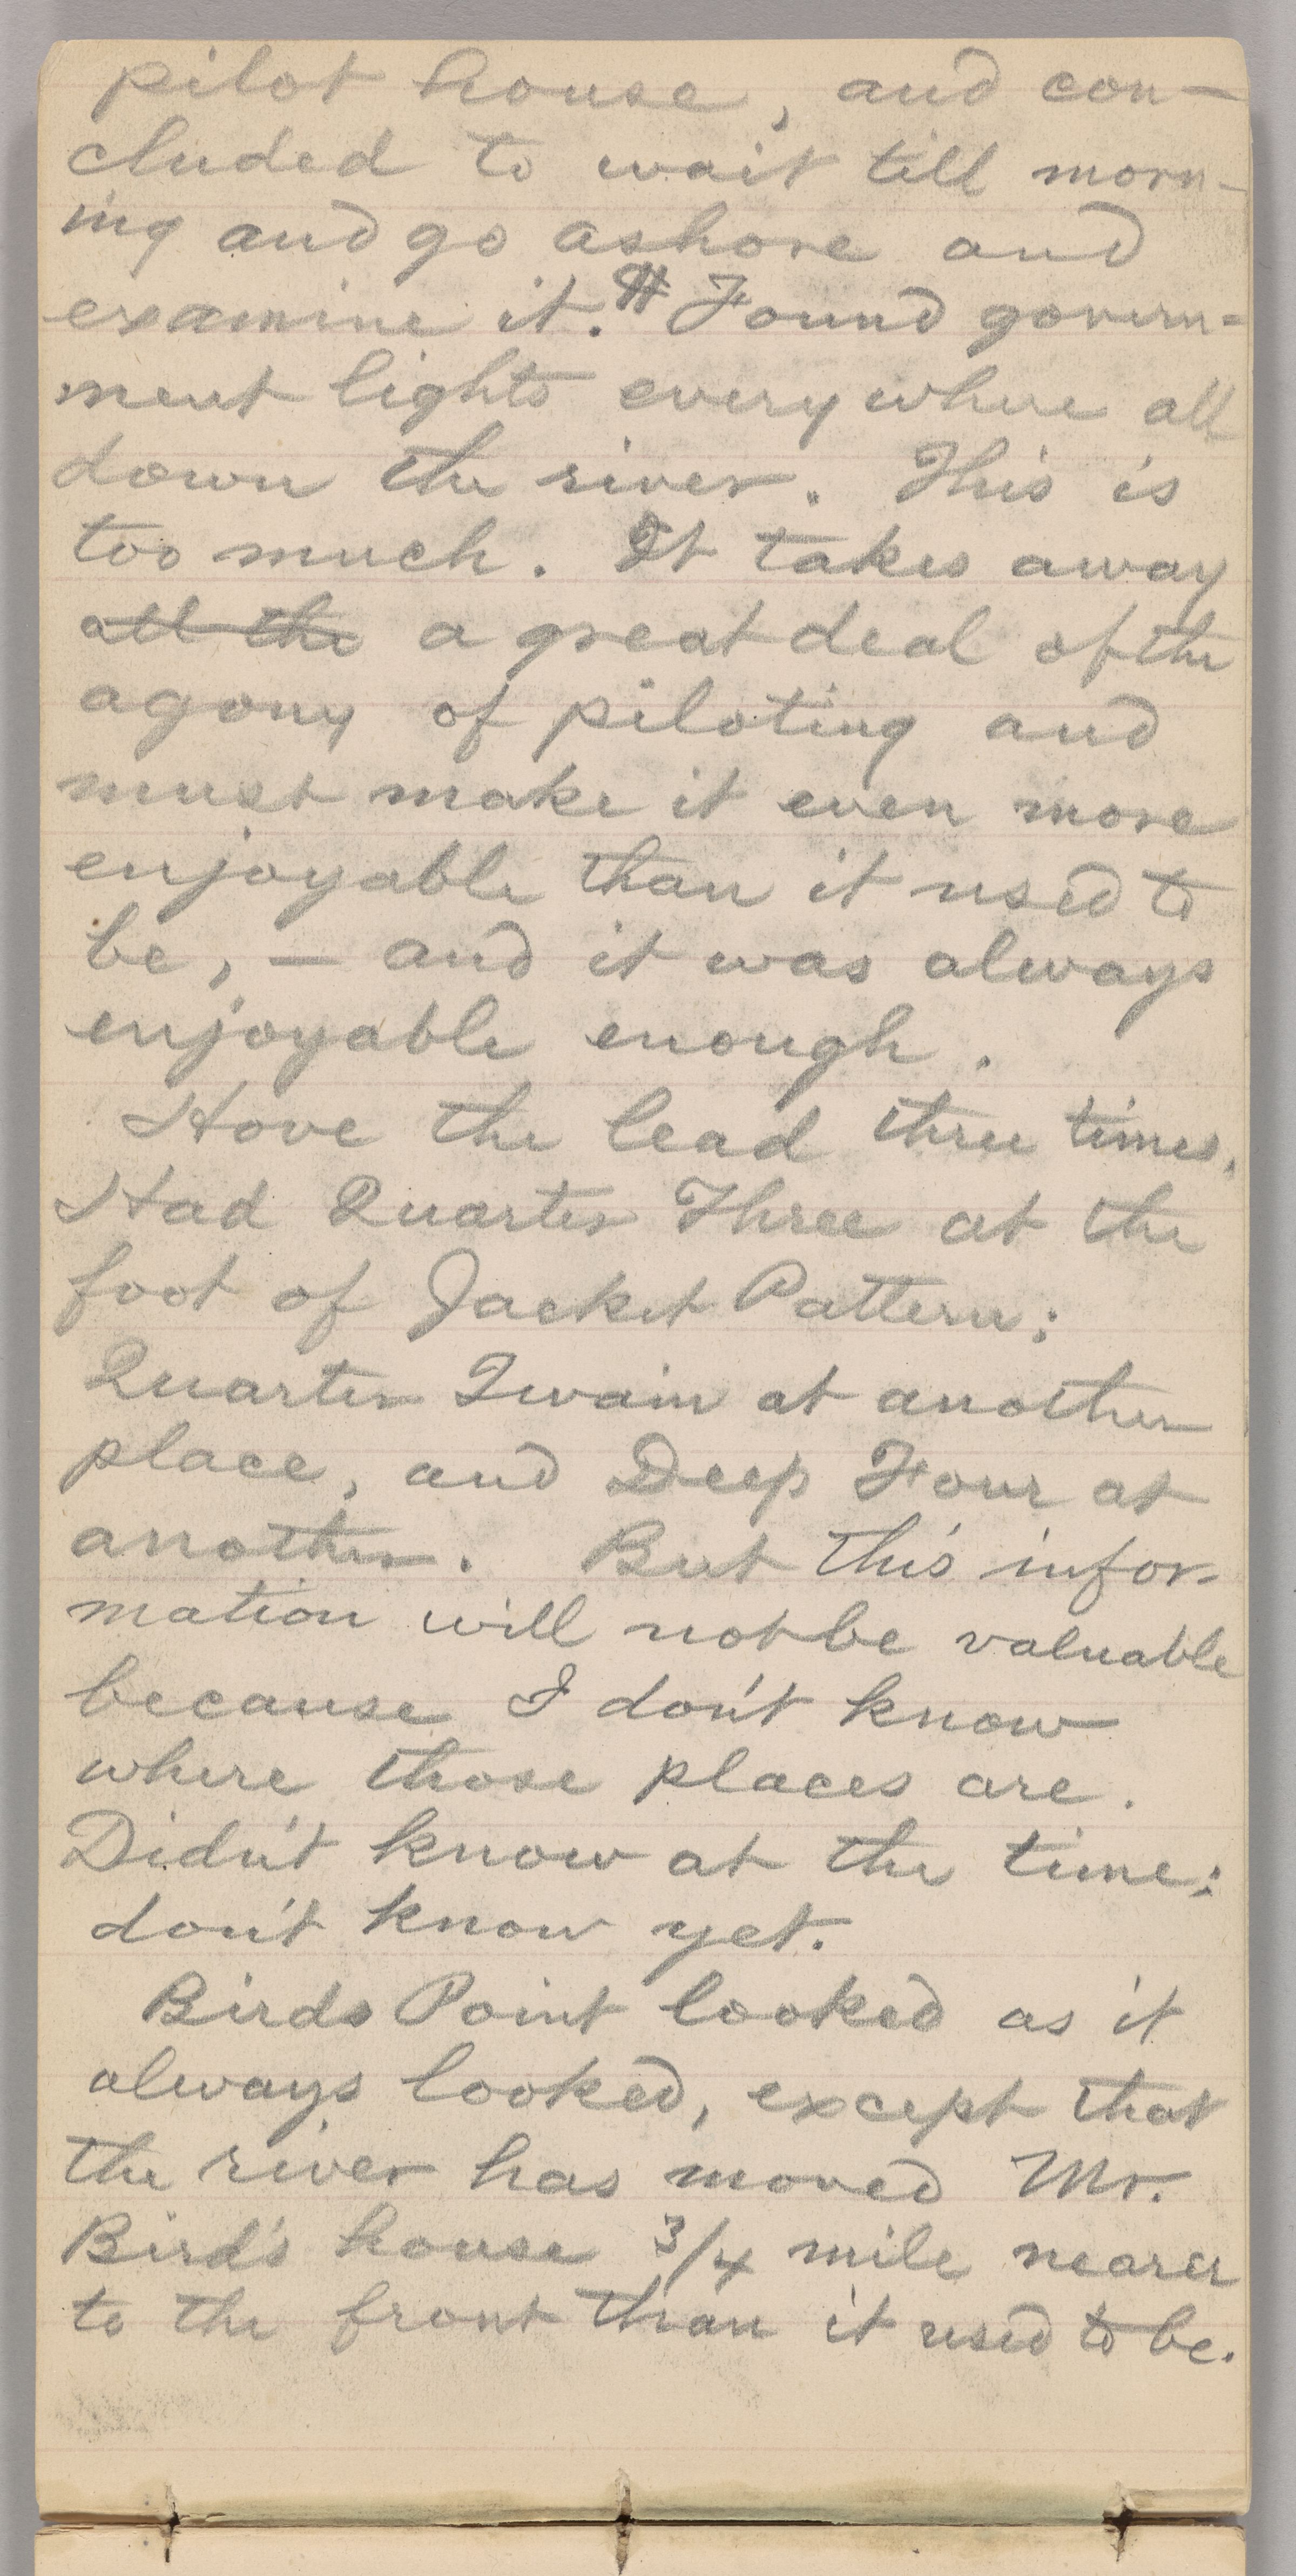 pilot house, and con-
cluded to wait till morn-
ing and go ashore and
examine it. # Found govern=
ment lights everywhere all
down the river. This is
too much. It takes away
all the a great deal of the
agony of piloting and
must make it even more
enjoyable than it used to
be, — and it was always
enjoyable enough.
Hove the lead three times.
Had Quarter Three at the
foot of Jacket Pattern;
Quarter Twain at another
place, and Deep Four at
another. But this infor-
mation will not be valuable
because I don't know
where those places are.
Didn't know at the time;
don't know yet.
Birds Point looked as it
always looked, except that
the river has moved Mr.
Bird's house 3/4 mile nearer
to the front than it used to be.